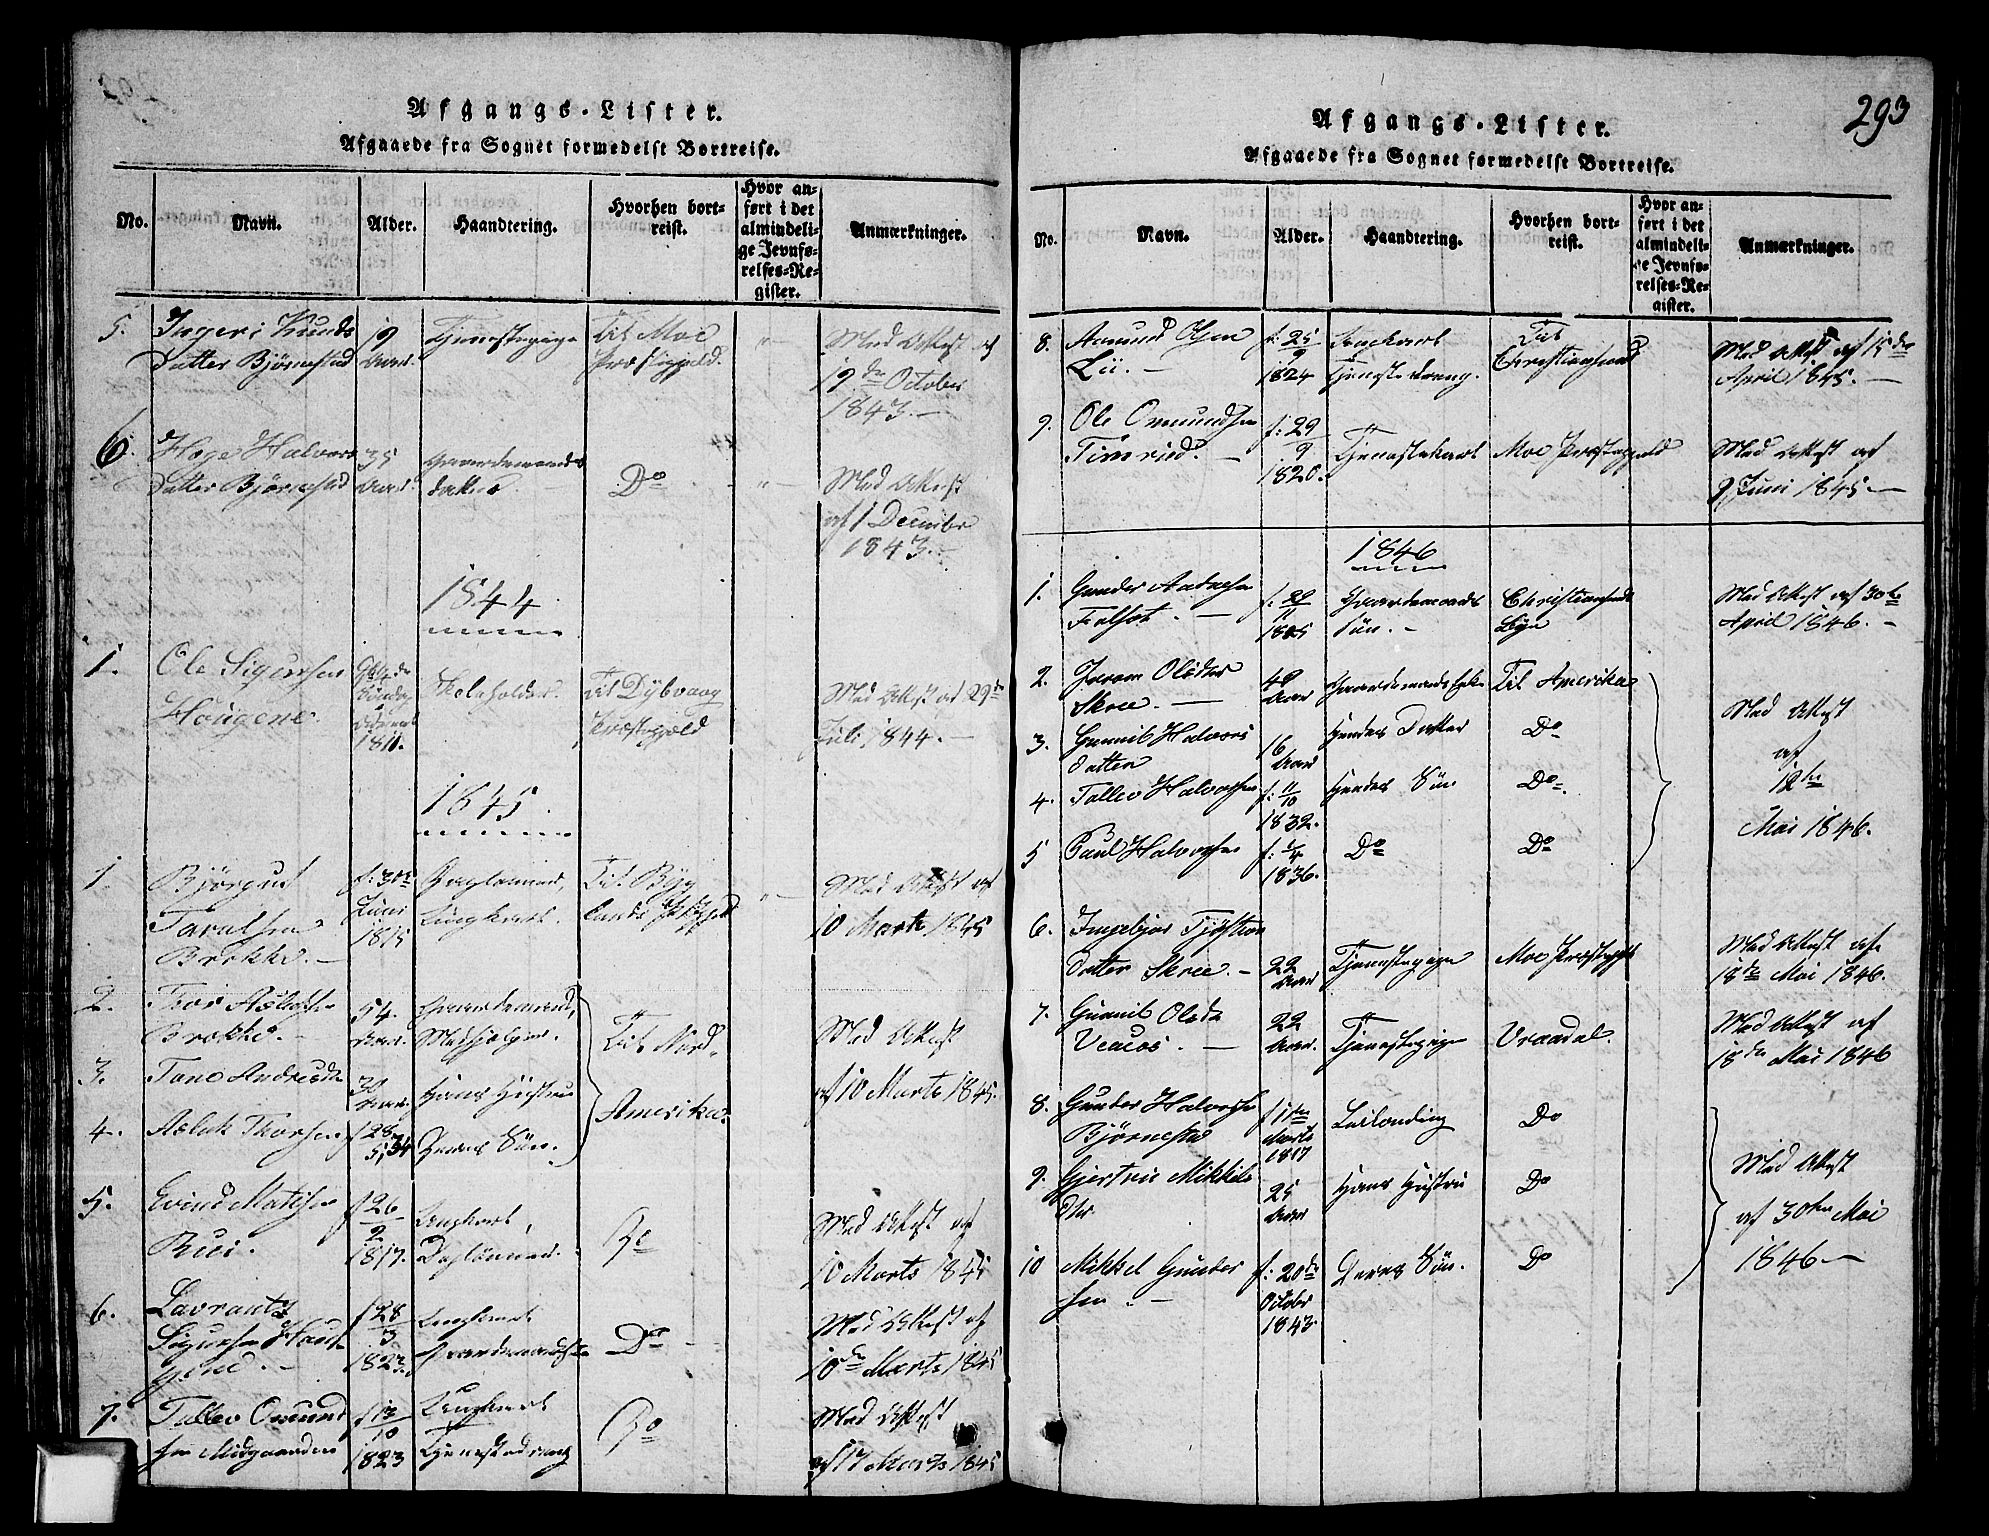 Afgangs-Lister.
Afgaaede fra Sognet formedelst Bortreise.
No. Navn. Alder. Haandtering. Hvorhen bortreist. Hvor anført i det almindelige Jevnførelses-Register. Anmærkninger.
5. Ingeri Knuds 19 Tjenestepige Til Moe " Med Attest af
Datter Bjørnestad Aar. Præstegjeld. 19de October
1843.
6. Hege Halvors 35 Gaardemands Do " Med Attest
Datter Bjørnestad Aar. Datter. af 1 December
1843.
1844
1. Ole Sigursen Skoleholder. Til Dybvaag Med Attest af 29de
Hougene. 1811. Præstegjeld Juli 1844.
1845
1. Bjørgus f: 30te Til Byg " Med Attest af
Taralsen Juni Ungkarl. lands 10 Marts 1845
Brokke. 1815
2. Thor Aslaksen 54. Gaardemand, Til Nord- Med Attest
Brokke. Aar. Amerika. af 10 Marts 1845.
3. Tone Andresdr 30 Aar. Hans Hustrue
4. Aslak Thorsen f 28 Deres Søn.
5. Evind f 26/2 Ungkarl, Do Med Attest af
Rui. 1817. 10 Marts 1845
6. Lavrants f 28/3 Ungkarl Do Med Attest af
Sigursen Hou- 1823. 10de Marts 1845
gene.
7. Tallev Omund f 13/10 Ungkarl Do Med Attest
sen Midgaarden 1823 Tjenestedreng af 17 Marts 1845
293
Afgangs-Lister.
Afgaaede fra Sognet formedelst Bortreise.
No. Navn. Alder. Haandtering. Hvorhen bortreist. Hvor anført i det almindelige Jevnførelses-Register. Anmærkninger.
8. Aamund f: 25/9 Ungkarl Til Med Attest af 15de
Lii. 1824 Tjenestedreng. Christiansand April 1845.
9. Ole Omundsen f: 29/9 Tjenestekarl Moe Præstegjeld Med Attest af
1820. 9 Juni 1845
1846
1. Gunder Gaardemands Christiansands Med Attest af 30te
Søn. Bye April 1846.
2. Joran Olsdtter 49 Til Amerika Med Attest
Skree. Aar
3. Gunnil Halvors 16 Hendes Datter Do af
datter Aar
4. Tallev Halvorsen f: 11/10 Hendes Søn Do 12te
1832.
5 Paul Halvorsen Do Do Mai 1846.
1836.
6. Ingebjør Tjøstlou 22 Tjenestepige Moe Præstegjeld Med Attest af
datter Skree. Aar 18de Mai 1846.
7. Gunnil Olsdr 22 Tjenestepige Vraadal. Med Attest af
Veaces. Aar. 18de Mai 1846
8. Gunder Halvorsen f 1ste Leilænding Do Med Attest
Bjørnestad Marts
1817
9. Gjertru Mikkels 25 Hans Hustru Do af 30te Mai
Dtr Aar
10 Mikkel Gunder f: 20de Deres Søn. Do 1846
sen October
1843.